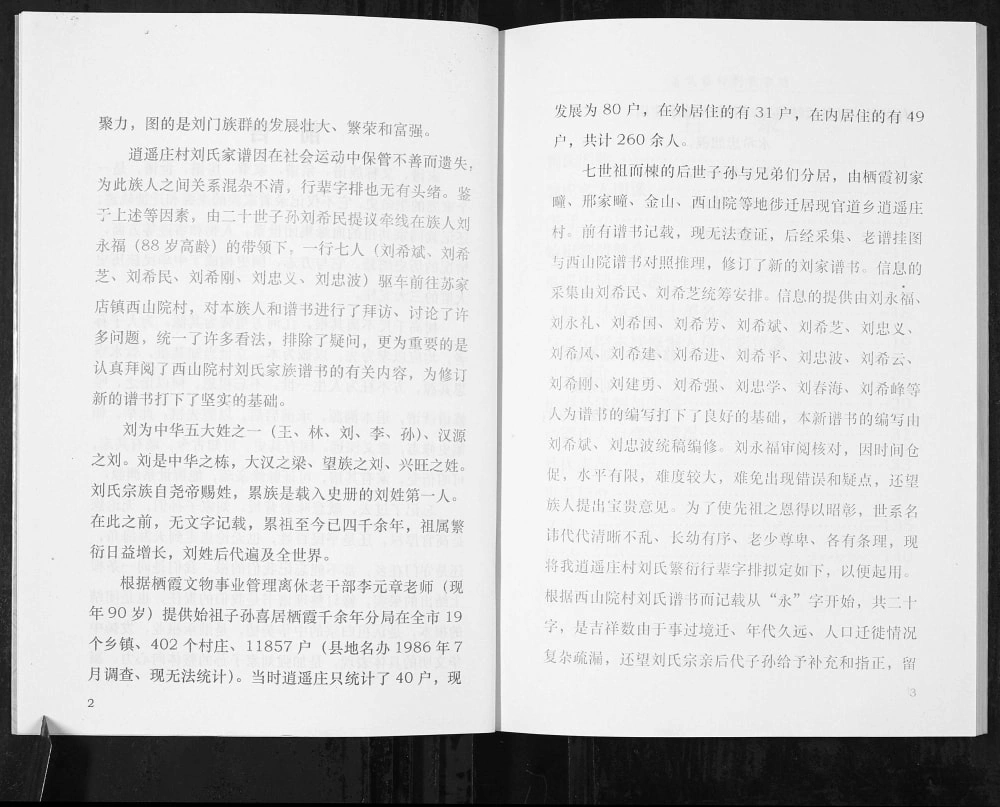 聚力，图的是刘门族群的发展壮大、繁荣和富强。
逍遥庄村刘氏家谱因在社会运动中保管不善而遗失，
为此族人之间关系混杂不清，行辈字排也无有头绪。鉴
于上述等因素，由二十世子孙刘希民提议牵线在族人刘
永福（88 岁高龄）的带领下，一行七人（刘希斌、刘希
芝、刘希民、刘希刚、刘忠义、刘忠波）驱车前往苏家
店镇西山院村，对本族人和谱书进行了拜访、讨论了许
多问题，统一了许多看法，排除了疑问，更为重要的是
认真拜阅了西山院村刘氏家族谱书的有关内容，为修订
新的谱书打下了坚实的基础。
刘为中华五大姓之一（王、林、刘、李、孙）、汉源
之刘。刘是中华之栋，大汉之梁、望族之刘、兴旺之姓。
刘氏宗族自尧帝赐姓，累族是载入史册的刘姓第一人。
在此之前，无文字记载，累祖至今已四千余年，祖属繁
衍日益增长，刘姓后代遍及全世界。
根据栖霞文物事业管理离休老干部李元章老师（现
年 90 岁）提供始祖子孙喜居栖霞千余年分局在全市 19
个乡镇、402 个村庄、11857 户（县地名办 1986 年 7
月调查、现无法统计）。当时逍遥庄只统计了 40 户，现
2
发展为 80 户，在外居住的有 31 户，在内居住的有 49
户，共计 260 余人。
七世祖而楝的后世子孙与兄弟们分居，由栖霞初家
疃、邢家疃、金山、西山院等地徙迁居现官道乡逍遥庄
村。前有谱书记载，现无法查证，后经采集、老谱挂图
与西山院谱书对照推理，修订了新的刘家谱书。信息的
采集由刘希民、刘希芝统筹安排。信息的提供由刘永福、
刘永礼、刘希国、刘希芳、刘希斌、刘希芝、刘忠义、
刘希凤、刘希建、刘希进、刘希平、刘忠波、刘希云、
刘希刚、刘建勇、刘希强、刘忠学、刘春海、刘希峰等
人为谱书的编写打下了良好的基础，本新谱书的编写由
刘希斌、刘忠波统稿编修。刘永福审阅核对，因时间仓
促，水平有限，难度较大，难免出现错误和疑点，还望
族人提出宝贵意见。为了使先祖之恩得以昭彰，世系名
讳代代清晰不乱、长幼有序、老少尊卑、各有条理，现
将我逍遥庄村刘氏繁衍行辈字排拟定如下，以便起用。
根据西山院村刘氏谱书而记载从“永”字开始，共二十
字，是吉祥数由于事过境迁、年代久远、人口迁徙情况
复杂疏漏，还望刘氏宗亲后代子孙给予补充和指正，留
3